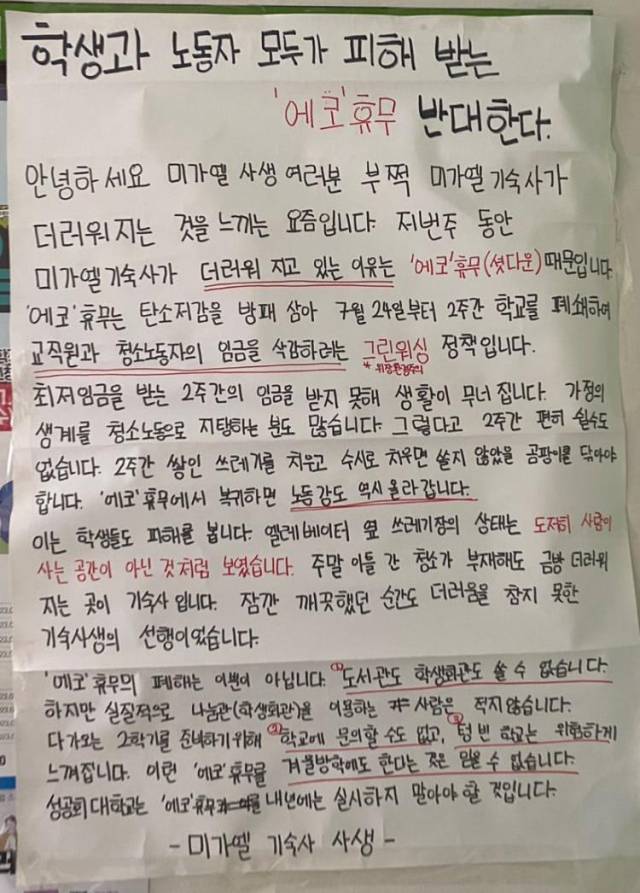 학생과 노동자 모두가 피해 받는
'에코'휴무 반대한다.
안녕하세요 미가엘 사생 여러분 부쩍 미가엘 기숙사가
더러워지는 것을 느끼는 요즘입니다. 저번주 동안
미가엘기숙사가 더러워 지고 있는 이유는 '에코'휴무(셧다운)때문입니다.
'에코'휴무는 탄소저감을 방패 삼아 7월 24일부터 2주간 학교를 폐쇄하여
교직원과 청소노동자의 임금을 삭감하려는 그린워싱 정책입니다.
*위장환경주의
최저임금을 받는 2주간의 임금을 받지 못해 생활이 무너집니다. 가정의
생계를 청소노동으로 지탱하는 분도 많습니다. 그렇다고 2주간 편히 쉴수도
없습니다. 2주간 쌓인 쓰레기를 치우고 수시로 치우면 쓸지 않았을 곰팡이를 닦아야
합니다. '에코'휴무에서 복귀하면 노동강도 역시 올라갑니다.
이는 학생들도 피해를 봅니다. 엘레베이터 옆 쓰레기장의 상태는 도저히 사람이
사는 공간이 아닌 것처럼 보였습니다. 주말 이틀 간 청소가 부재해도 금방 더러워
지는 곳이 기숙사 입니다. 잠깐 깨끗했던 순간도 더러움을 참지 못한
기숙사생의 선행이었습니다.
'에코'휴무의 폐해는 이뿐이 아닙니다. ①도서관도 학생회관도 쓸 수 없습니다.
하지만 실질적으로 나눔관(학생회관)을 이용하는 사람은 적지않습니다.
다가오는 2학기를 준비하기위해 ②학교에 문의할 수도 없고, ③텅 빈 학교는 위험하게
느껴집니다. 이런 '에코'휴무를 겨울방학에도 한다는 것은 믿을 수 없습니다.
성공회대학교는 '에코'휴무 내년에는 실시하지 말아야 할 것입니다.
- 미가엘 기숙사 사생 -